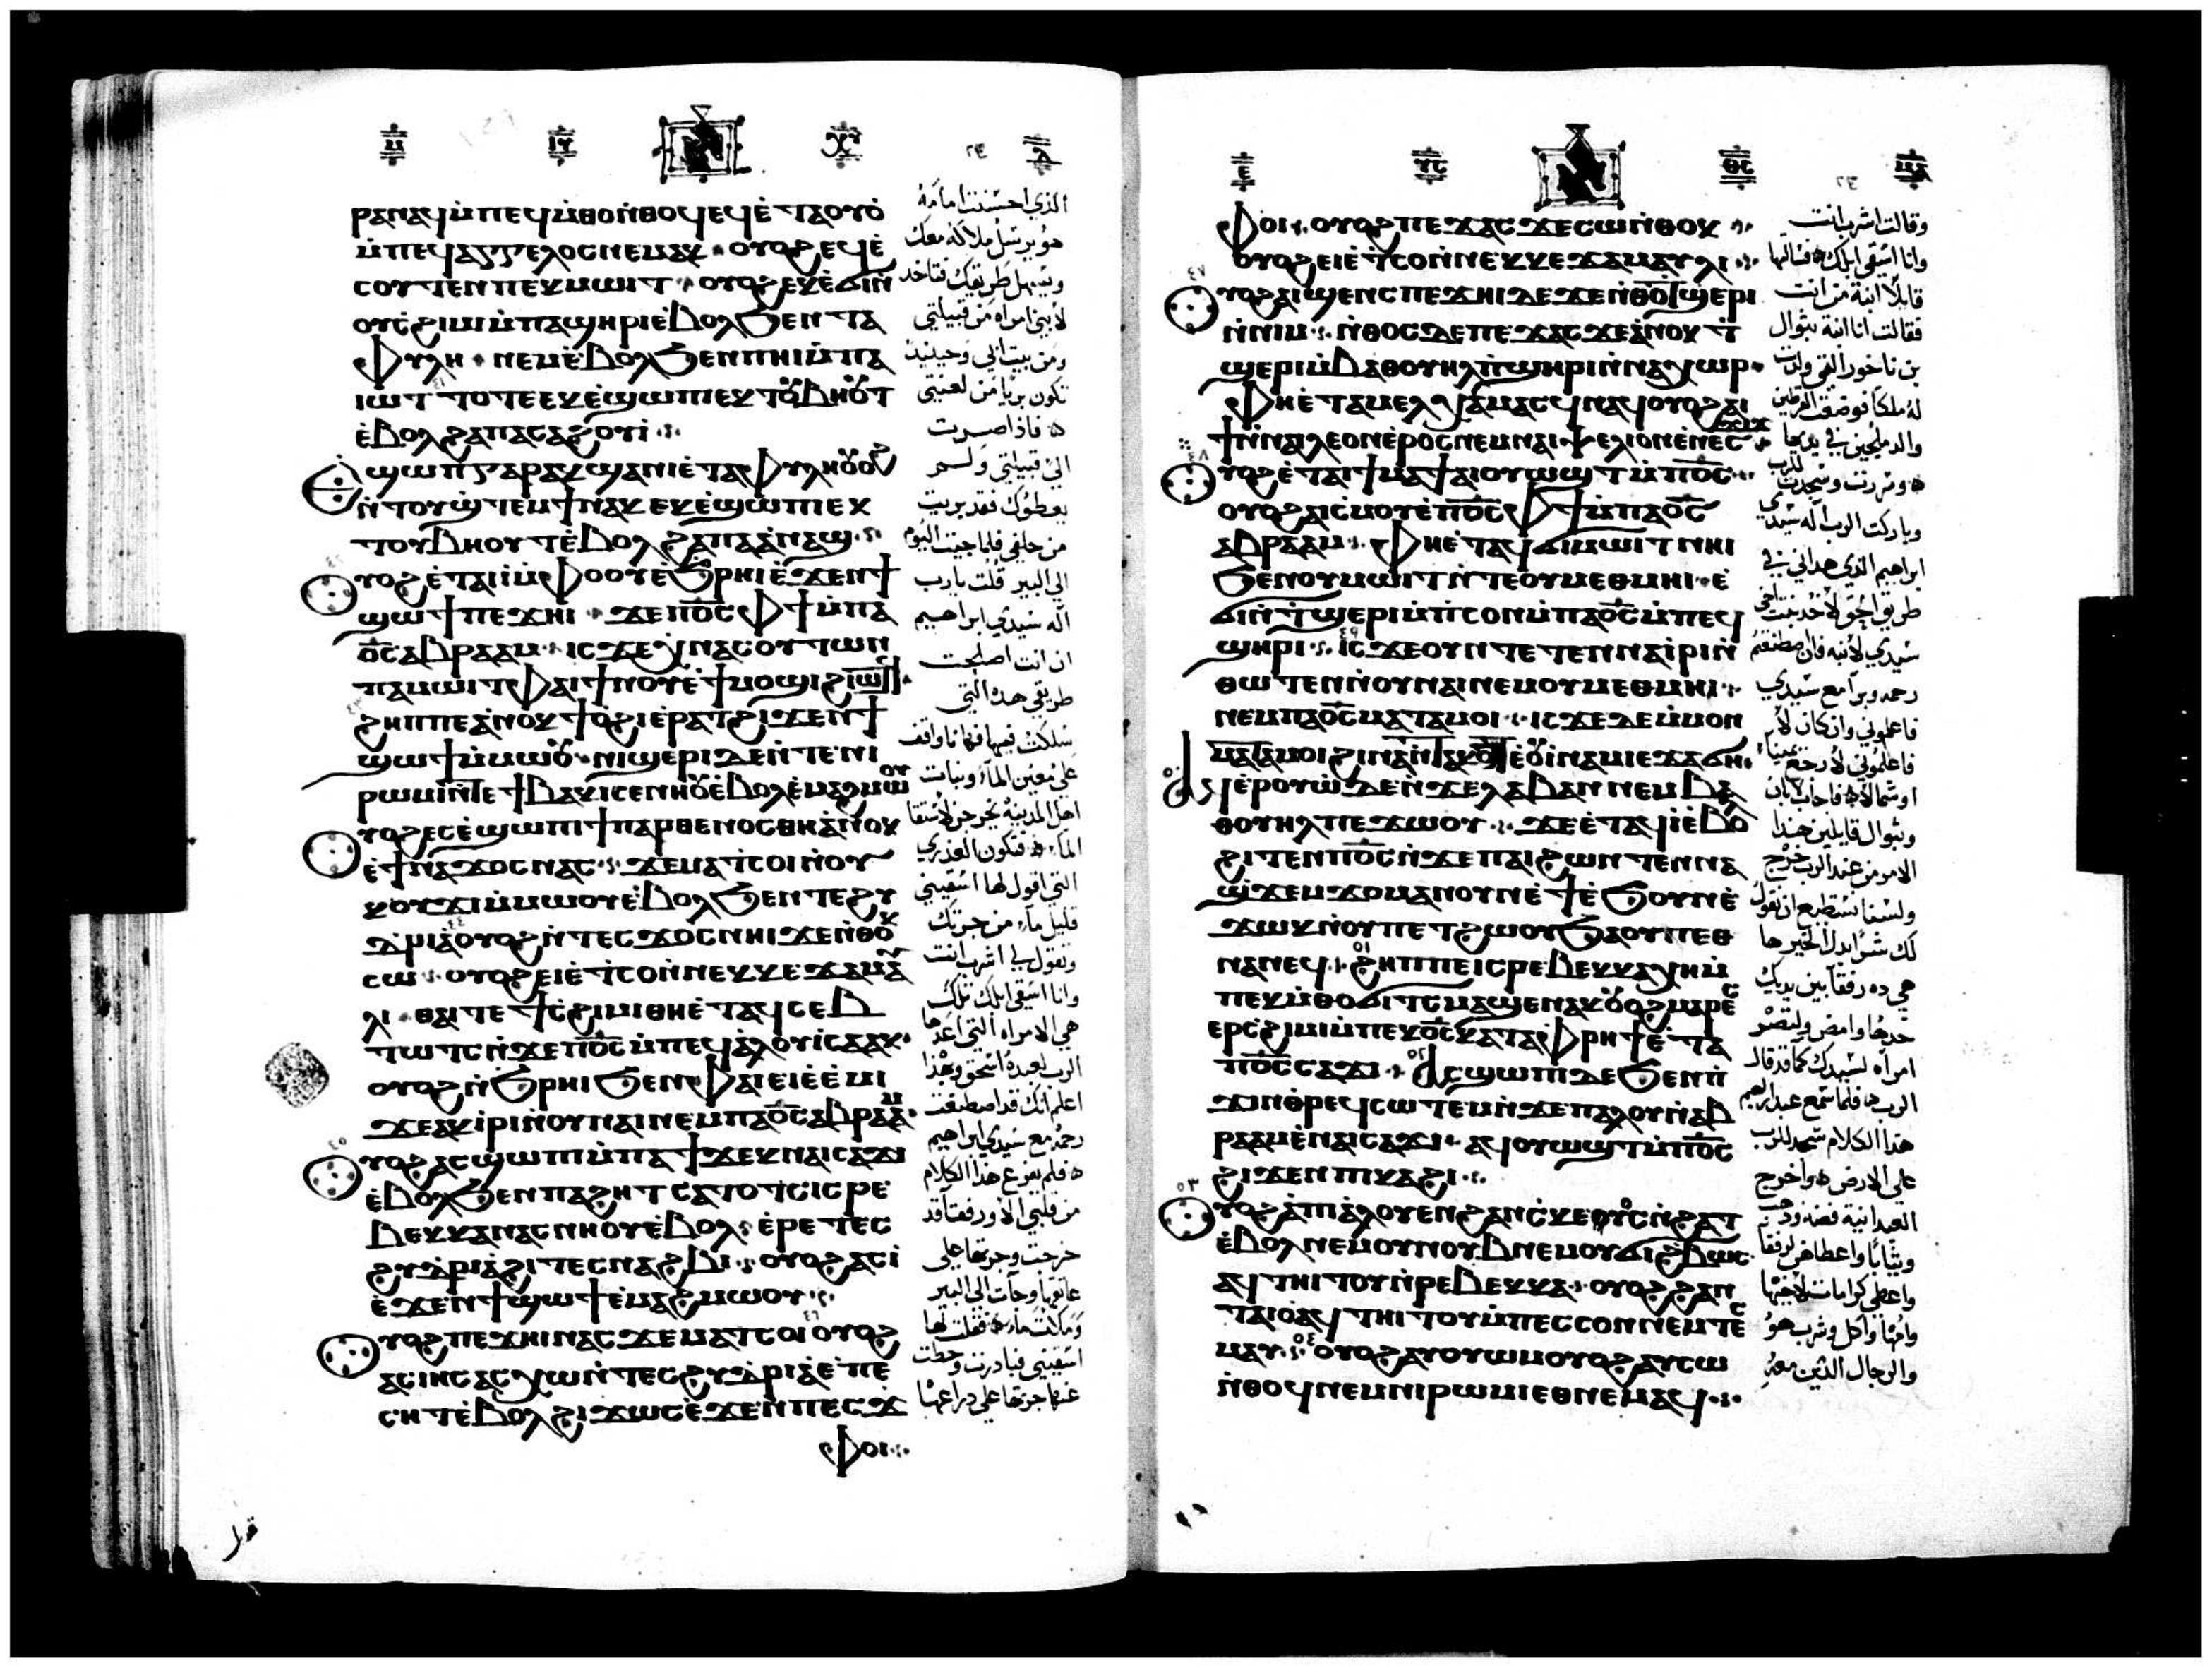 ⲣⲁⲛⲁϥ ⲙ̀ⲡⲉϥⲙ̀ⲑⲟ ⲛ̀ⲑⲟϥ ⲉϥⲉ̀ⲧⲁⲟⲩⲟ̀
ⲙ̀ⲡⲉϥⲁⲅⲅⲉⲗⲟⲥ ⲛⲉⲙⲁⲕ ⲟⲩⲟϩ ⲉϥⲉ̀
ⲥⲟⲩⲧⲉⲛ ⲡⲉⲕⲙⲱⲓⲧ ⲟⲩⲟϩ ⲉⲕⲉ̀ϭⲓⲛ̀
ⲟⲩⲥ̀ϩⲓⲙⲓ ⲙ̀ⲡⲁϣⲏⲣⲓ ⲉ̀ⲃⲟⲗ ϧⲉⲛ ⲧⲁ
ⲫⲩⲗⲏ ⲛⲉⲙ ⲉ̀ⲃⲟⲗ ϧⲉⲛ ⲡⲏⲓ ⲙ̀ⲡⲁ
ⲓⲱⲧ ⲧⲟⲧⲉ ⲉⲕⲉ̀ϣⲱⲡⲓ ⲉⲕⲧⲟⲩⲃⲏⲟⲩⲧ
ⲉ̀ⲃⲟⲗ ϩⲁ ⲡⲁⲥⲁϩⲟⲩⲓ̀
ⲉϣⲱⲡ ⲅⲁⲣ ⲁⲕϣⲁⲛⲓ̀ ⲉ̀ⲧⲁⲫⲩⲗⲏ ⲟⲩⲟϩ
ⲛ̀ⲧⲟⲩϣ̀ⲧⲉⲙϯ ⲛⲁⲕ ⲉⲕⲉ̀ϣⲱⲡⲓ ⲉⲕ
ⲧⲟⲩⲃⲏⲟⲩⲧ ⲉ̀ⲃⲟⲗ ϩⲁ ⲡⲁⲁ̀ⲛⲁϣ
ⲟⲩⲟϩ ⲉ̀ⲧⲁⲓⲓ̀ ⲙ̀ⲫⲟⲟⲩ ⲉ̀ϧⲣⲏⲓ ⲉ̀ϫⲉⲛ ϯ
ϣⲱϯ ⲡⲉϫⲏⲓ ϫⲉ ⲡ⳪ ⲫϯ ⲙ̀ⲡⲁ
ⲟ̅ⲥ̅ ⲁⲃⲣⲁⲁⲙ ⲓⲥϫⲉ ⲭⲛⲁⲥⲟⲩⲧⲱⲛ
ⲡⲁⲙⲱⲓⲧ ⲫⲁⲓ ϯⲛⲟⲩ ⲉ̀ϯⲙⲟϣⲓ ϩⲓⲱⲧϥ
ϩⲏⲡⲡⲉ ⲁ̀ⲛⲟⲕ ϯⲟ̀ϩⲓ ⲉ̀ⲣⲁⲧ ϩⲓϫⲉⲛ ϯ
ϣⲱϯ ⲙ̀ⲙⲱⲟⲩ ⲛⲓϣⲉⲣⲓ ⲇⲉ ⲛ̀ⲧⲉ ⲛⲓ
ⲣⲱⲙⲓ ⲛ̀ⲧⲉ ϯⲃⲁⲕⲓ ⲥⲉⲛⲏⲟⲩ ⲉ̀ⲃⲟⲗ ⲉ̀ⲙⲁϩⲙⲱⲟⲩ
ⲟⲩⲟϩ ⲉⲥⲉ̀ϣⲱⲡⲓ ϯⲡⲁⲣⲑⲉⲛⲟⲥ ⲑⲏ ⲁ̀ⲛⲟⲕ
ⲉ̀ϯⲛⲁϫⲟⲥ ⲛⲁⲥ ϫⲉ ⲙⲁⲧⲥⲟⲓ ⲛ̀ⲟⲩ
ⲕⲟⲩϫⲓ ⲙ̀ⲙⲱⲟⲩ ⲉ̀ⲃⲟⲗ ϧⲉⲛ ⲧⲉϩⲩ
ⲇⲣⲓⲁ̀ ⲟⲩⲟϩ ⲛ̀ⲧⲉⲥϫⲟⲥ ⲛⲏⲓ ϫⲉ ⲛ̀ⲑⲟⲕ
ⲥⲱ ⲟⲩⲟϩ ⲉⲓⲉ̀ⲧⲥⲟ ⲛ̀ⲛⲉⲕⲕⲉϫⲁⲙⲁⲩ
ⲗⲓ ⲑⲁⲓ ⲧⲉ ϯⲥ̀ϩⲓⲙⲓ ⲑⲏ ⲉ̀ⲧⲁϥⲥⲉⲃ
ⲧⲱⲧⲥ ⲛ̀ϫⲉ ⲡ⳪ ⲙ̀ⲡⲉϥⲁ̀ⲗⲟⲩ ⲓⲥⲁⲁⲕ
ⲟⲩⲟϩ ⲛ̀ϧⲣⲏⲓ ϧⲉⲛ ⲫⲁⲓ ⲉⲓⲉ̀ⲉ̀ⲙⲓ
ϫⲉ ⲁⲕⲓ̀ⲣⲓ ⲛ̀ⲟⲩⲛⲁⲓ ⲛⲉⲙ ⲡⲁⲟ̅ⲥ̅ ⲁⲃⲣⲁⲁⲙ
ⲟⲩⲟϩ ⲁⲥϣⲱⲡⲓ ⲙ̀ⲡⲁϯϫⲉⲕ ⲛⲁⲓⲥⲁϫⲓ
ⲉ̀ⲃⲟⲗ ϧⲉⲛ ⲡⲁϩⲏⲧ ⲥⲁⲧⲟⲧⲥ ⲓⲥ ⲣⲉ
ⲃⲉⲕⲕⲁ ⲛⲁⲥⲛⲏⲟⲩ ⲉ̀ⲃⲟⲗ ⲉ̀ⲣⲉ ⲧⲉⲥ
ϩⲩⲇⲣⲓⲁ̀ ϩⲓ ⲧⲉⲥⲛⲁϩⲃⲓ ⲟⲩⲟϩ ⲁⲥⲓ̀
ⲉ̀ϫⲉⲛ ϯϣⲱϯ ⲉ̀ⲙⲁϩⲙⲱⲟⲩ
ⲟⲩⲟϩ ⲡⲉϫⲏⲓ ⲛⲁⲥ ϫⲉ ⲙⲁⲧⲥⲟⲓ ⲟⲩⲟϩ
ⲁⲥⲓⲏⲥ ⲁⲥⲭⲱ ⲛ̀ⲧⲉⲥϩⲩⲇⲣⲓⲁ̀ ⲉ̀ⲡⲉ
ⲥⲏⲧ ⲉ̀ⲃⲟⲗ ϩⲓϫⲱⲥ ⲉ̀ϫⲉⲛ ⲡⲉⲥϫ
ⲫⲟⲓ
الذي احسنت امامه
هو يرسل ملاكه معك
ويسهل طريقك فتاخد
لابني امراه من قبيلتي
ومن بيت ابي وحينيد
تكون بريا من لعنتي
فاذا صرت
الي قبيلتي ولم
يعطوك فقد بريت
من حلفي فلما جيت اليوم
الي البير قلت يارب
اله سيدي ابراهيم
ان انت اصلحت
طريقي هده التي
سلكت فيها فها انا واقف
علي معين الماء وبنات
اهل المدينة تخرجن لاستقا
الماء فتكون العذري
التي اقول لها اسقيني
قليل ماء من جرتك
وتقول لي اشرب انت
وانا اسقي ابلك تلك
هي الامراه التي اعدها
الرب لعبده اسحق وبهذا
اعلم انك قد اصطنعت
رحمه مع سيدي ابراهيم
فلم يفرغ هذا الكلام
من قلبي الا ورفقا قد
خرجت وجرتها علي
عاتقها وجات الي البير
وملت ماء فقلت لها
اسقيني فبادرت وحطت
عنها جرتها علي دراعها
ⲫⲟⲓ ⲟⲩⲟϩ ⲡⲉϫⲁⲥ ϫⲉ ⲥⲱ ⲛ̀ⲑⲟⲕ
ⲟⲩⲟϩ ⲉⲓⲉ̀ⲧⲥⲟ ⲛ̀ⲛⲉⲕⲕⲉϫⲁⲙⲁⲩⲗⲓ
ⲟⲩⲟϩ ⲁⲓϣⲉⲛⲥ ⲡⲉϫⲏⲓ ⲇⲉ ϫⲉ ⲛ̀ⲑⲟ ⲧϣⲉⲣⲓ
ⲛ̀ⲛⲓⲙ ⲛ̀ⲑⲟⲥ ⲇⲉ ⲡⲉϫⲁⲥ ϫⲉ ⲁ̀ⲛⲟⲕ ⲧ̀
ϣⲉⲣⲓ ⲙ̀ⲃⲁⲑⲟⲩⲏⲗ ⲡ̀ϣⲏⲣⲓ ⲛ̀ⲛⲁⲭⲱⲣ
ⲫⲏ ⲉ̀ⲧⲁ ⲙⲉⲗⲭⲁ ⲙⲁⲥϥ ⲛⲁϥ ⲟⲩⲟϩ ⲁⲓ
ϯ ⲛ̀ⲛⲓⲗⲉⲟⲛ ⲉ̀ⲣⲟⲥ ⲛⲉⲙ ⲛⲓⲯⲉⲗⲓⲟⲛ ⲉ̀ⲛⲉⲥϫⲓϫ
ⲟⲩⲟϩ ⲉ̀ⲧⲁⲓϯⲙⲁϯ ⲁⲓⲟⲩⲱϣⲧ ⲙ̀ⲡ⳪
ⲟⲩⲟϩ ⲁⲓⲥⲙⲟⲩ ⲉ̀ⲡ⳪ ⲫϯ ⲙ̀ⲡⲁⲟ̅ⲥ̅
ⲁⲃⲣⲁⲁⲙ ⲫⲏ ⲉ̀ⲧⲁϥϭⲓⲙⲱⲓⲧ ⲛⲏⲓ
ϧⲉⲛ ⲟⲩⲙⲱⲓⲧ ⲛ̀ⲧⲉ ⲟⲩⲙⲉⲑⲙⲏⲓ ⲉ̀
ϭⲓ ⲛ̀ⲧ̀ϣⲉⲣⲓ ⲙ̀ⲡ̀ⲥⲟⲛ ⲙ̀ⲡⲁⲟ̅ⲥ̅ ⲙ̀ⲡⲉϥ
ϣⲏⲣⲓ ⲓⲥϫⲉ ⲟⲩⲛ ⲧⲉⲧⲉⲛⲛⲁⲓ̀ⲣⲓ ⲛ̀
ⲑⲱⲧⲉⲛ ⲛ̀ⲟⲩⲛⲁⲓ ⲛⲉⲙ ⲟⲩⲙⲉⲑⲙⲏⲓ
ⲛⲉⲙ ⲡⲁⲟ̅ⲥ̅ ⲙⲁⲧⲁⲙⲟⲓ ⲓⲥϫⲉ ⲇⲉ ⲙ̀ⲙⲟⲛ
ⲙⲁⲧⲁⲙⲟⲓ ϩⲓⲛⲁ ⲛ̀ⲧⲁⲕⲟⲧ ⲉ̀ⲟⲩⲓ̀ⲛⲁⲙ ⲓⲉ ϫⲁϭⲏ
ⲁϥⲉ̀ⲣⲟⲩⲱ̀ ⲇⲉ ⲛ̀ϫⲉ ⲗⲁⲃⲁⲛ ⲛⲉⲙ ⲃⲁ
ⲑⲟⲩⲏⲗ ⲡⲉϫⲱⲟⲩ ϫⲉ ⲉ̀ⲧⲁϥⲓ̀ ⲉ̀ⲃⲟⲗ
ϩⲓⲧⲉⲛ ⲡ⳪ ⲛ̀ϫⲉ ⲡⲁⲓϩⲱⲃ ⲛ̀ⲧⲉⲛⲛⲁ
ϣϫⲉⲙϫⲟⲙ ⲁⲛ ⲟⲩⲛ ⲉ̀ϯ ⲉ̀ϧⲟⲩⲛ ⲉ̀
ϫⲱⲕ ⲛ̀ⲟⲩⲡⲉⲧϩⲱⲟⲩ ϧⲁ ⲟⲩⲡⲉⲑ
ⲛⲁⲛⲉϥ ϩⲏⲡⲡⲉ ⲓⲥ ⲣⲉⲃⲉⲕⲕⲁ ⲭⲏ ⲙ̀
ⲡⲉⲕⲙ̀ⲑⲟ ϭⲓⲧⲥ ⲙⲁϣⲉⲛⲁⲕ ⲟⲩⲟϩ ⲙⲁⲣⲉⲥ
ⲉⲣⲥ̀ϩⲓⲙⲓ ⲙ̀ⲡⲉⲕⲟ̅ⲥ̅ ⲕⲁⲧⲁ ⲫⲣⲏϯ ⲉ̀ⲧⲁ
ⲡ⳪ ⲥⲁϫⲓ ⲁⲥϣⲱⲡⲓ ⲇⲉ ϧⲉⲛ ⲡ̀
ϫⲓⲛⲑ̀ⲣⲉϥⲥⲱⲧⲉⲙ ⲛ̀ϫⲉ ⲡⲁ̀ⲗⲟⲩ ⲛ̀ⲁⲃ
ⲣⲁⲁⲙ ⲉ̀ⲛⲁⲓⲥⲁϫⲓ ⲁϥⲟⲩⲱϣⲧ ⲙ̀ⲡ⳪
ϩⲓϫⲉⲛ ⲡⲓⲕⲁϩⲓ
ⲟⲩⲟϩ ⲁ̀ ⲡⲓⲁ̀ⲗⲟⲩ ⲉⲛ ϩⲁⲛⲥ̀ⲕⲉⲩⲟⲥ ⲛ̀ϩⲁⲧ
ⲉ̀ⲃⲟⲗ ⲛⲉⲙ ⲟⲩⲛⲟⲩⲃ ⲛⲉⲙ ⲟⲩϭⲓϩ̀ⲃⲱⲥ
ⲁϥⲧⲏⲓⲧⲟⲩ ⲛ̀ⲣⲉⲃⲉⲕⲕⲁ ⲟⲩⲟϩ ϩⲁⲛ
ⲧⲁⲓⲟ̀ ⲁϥⲧⲏⲓⲧⲟⲩ ⲙ̀ⲡⲉⲥⲥⲟⲛ ⲛⲉⲙ ⲧⲉⲥ
ⲙⲁⲩ ⲟⲩⲟϩ ⲁⲩⲟⲩⲱⲙ ⲟⲩⲟϩ ⲁⲩⲥⲱ
ⲛ̀ⲑⲟϥ ⲛⲉⲙ ⲛⲓⲣⲱⲙⲓ ⲉⲑⲛⲉⲙⲁϥ
وقالت اشرب انت
وانا اسقي ابلك فسالتها
قايلا ابنة من انت
فقالت انا ابنة بثوال
بن ناخور التي ولدت
له ملكا فوضعت القرطين
والدملجين في يديها
وسررت وسجدت للرب
وباركت الرب اله سيدي
ابراهيم الذي هداني في
طريق الحق لاخد بنت اخي
سيدي لابنه فان اصطنعتم
رحمه وبرا مع سيدي
فاعلموني وان كان لا
فاعلموني لارجع يمينا
او شمالا فاجاب لابان
وبثوال قايلين هذا
الامر من عند الرب خرج
ولسنا نستطيع ان نقول
لك شرا بدل الخير ها
هي ده رفقا بين يديك
خدها وامض ولتصر
امراه لسيدك كما قد قال
الرب فلما سمع عبد ابراهيم
هذا الكلام سجد للرب
علي الارض واخرج
العبد انية فضه ودهب
وثيابا واعطاهن لرفقا
واعطي كرامات لاخيها
وامها واكل وشرب هو
والرجال الذين معه